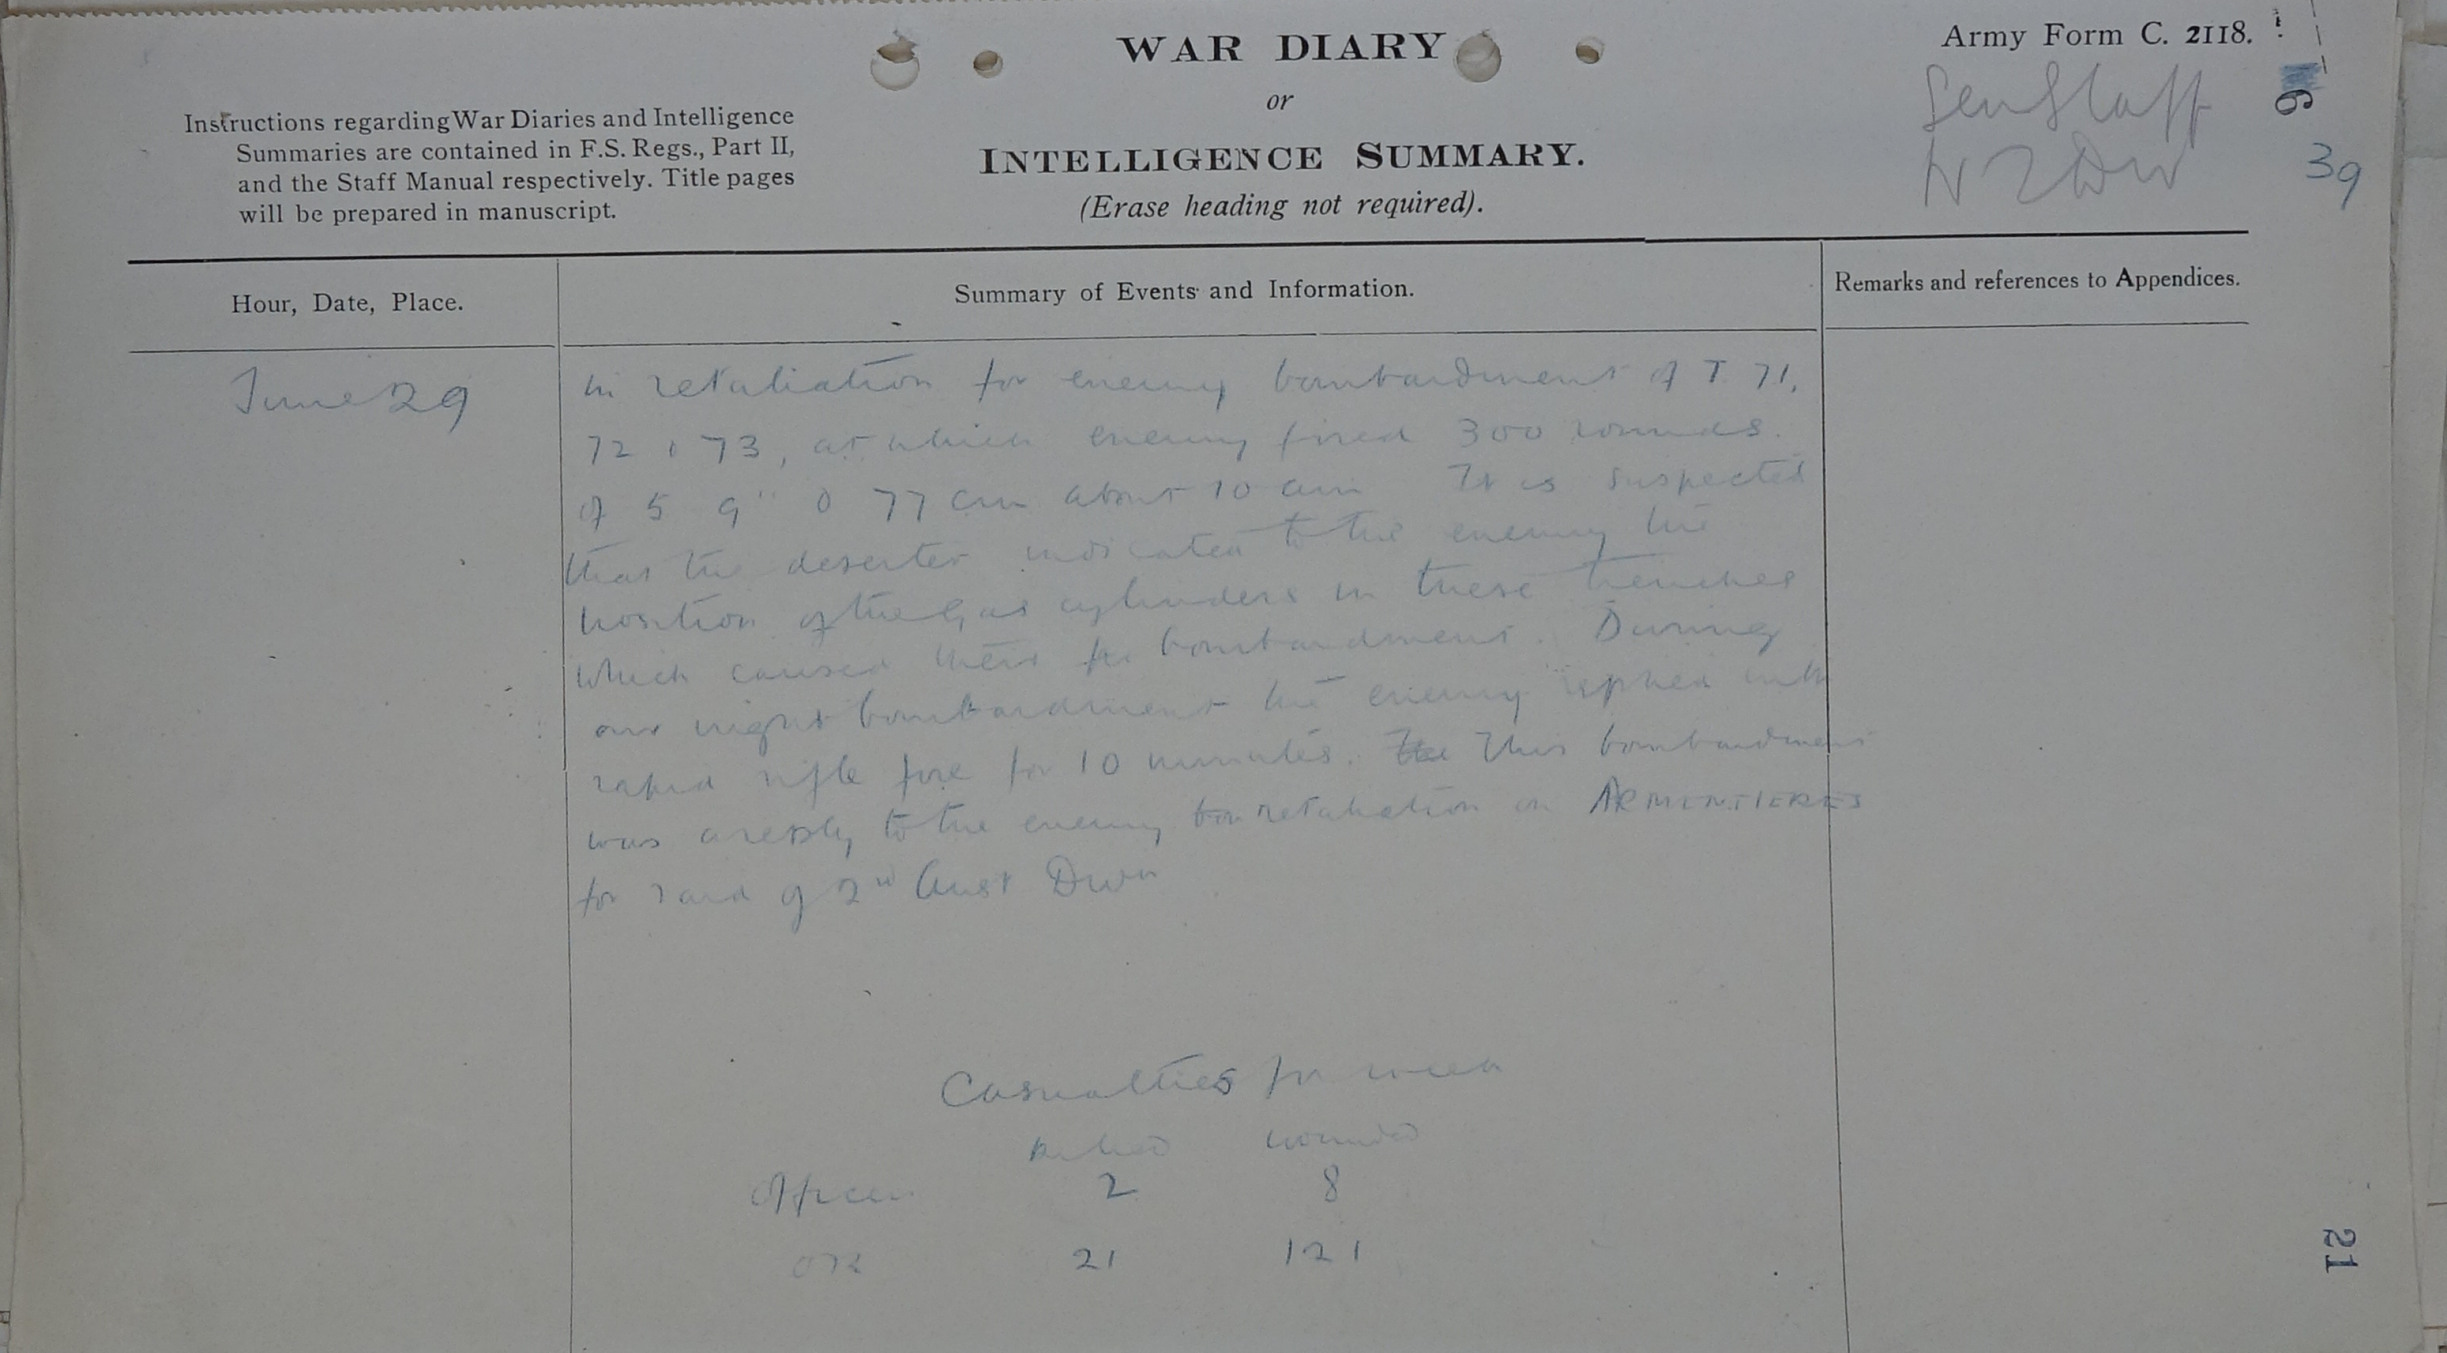 Army Form C. 2118.
WAR DIARY
or
INTELLIGENCE SUMMARY.
(Erase heading not required).
Instructions regarding War Diaries and Intelligence
Summaries are contained in F.S. Regs., Part II,
and the Staff Manual respectively. Title pages
will be prepared in manuscript.
Gen Staff
N Z Divn
6
39
Hour, Date, Place.
Summary of Events and Information.
Remarks and references to Appendices.
June 29
in retaliation for enemy bombardment of T. 71,
72 & 73, at which enemy fired 300 rounds
of 5 9" & 77 cm about 10 am It is suspected
that the deserter indicated to the enemy the
position of the Gas cylinders in these trenches
which caused their bombardment. During
our night bombardment the enemy replied with
rapid rifle fire for 10 minutes. The This bombardment
was a reply to the enemy retaliation on ARMENTIERES
for raid of 2nd Aust Divn
Casualties for week
Killed wounded
Officers 2 8
OR 21 121
21